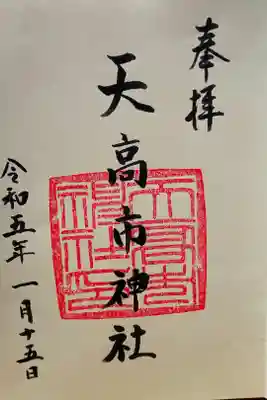 奉拝
天高市神社
令和五年 一月十五日